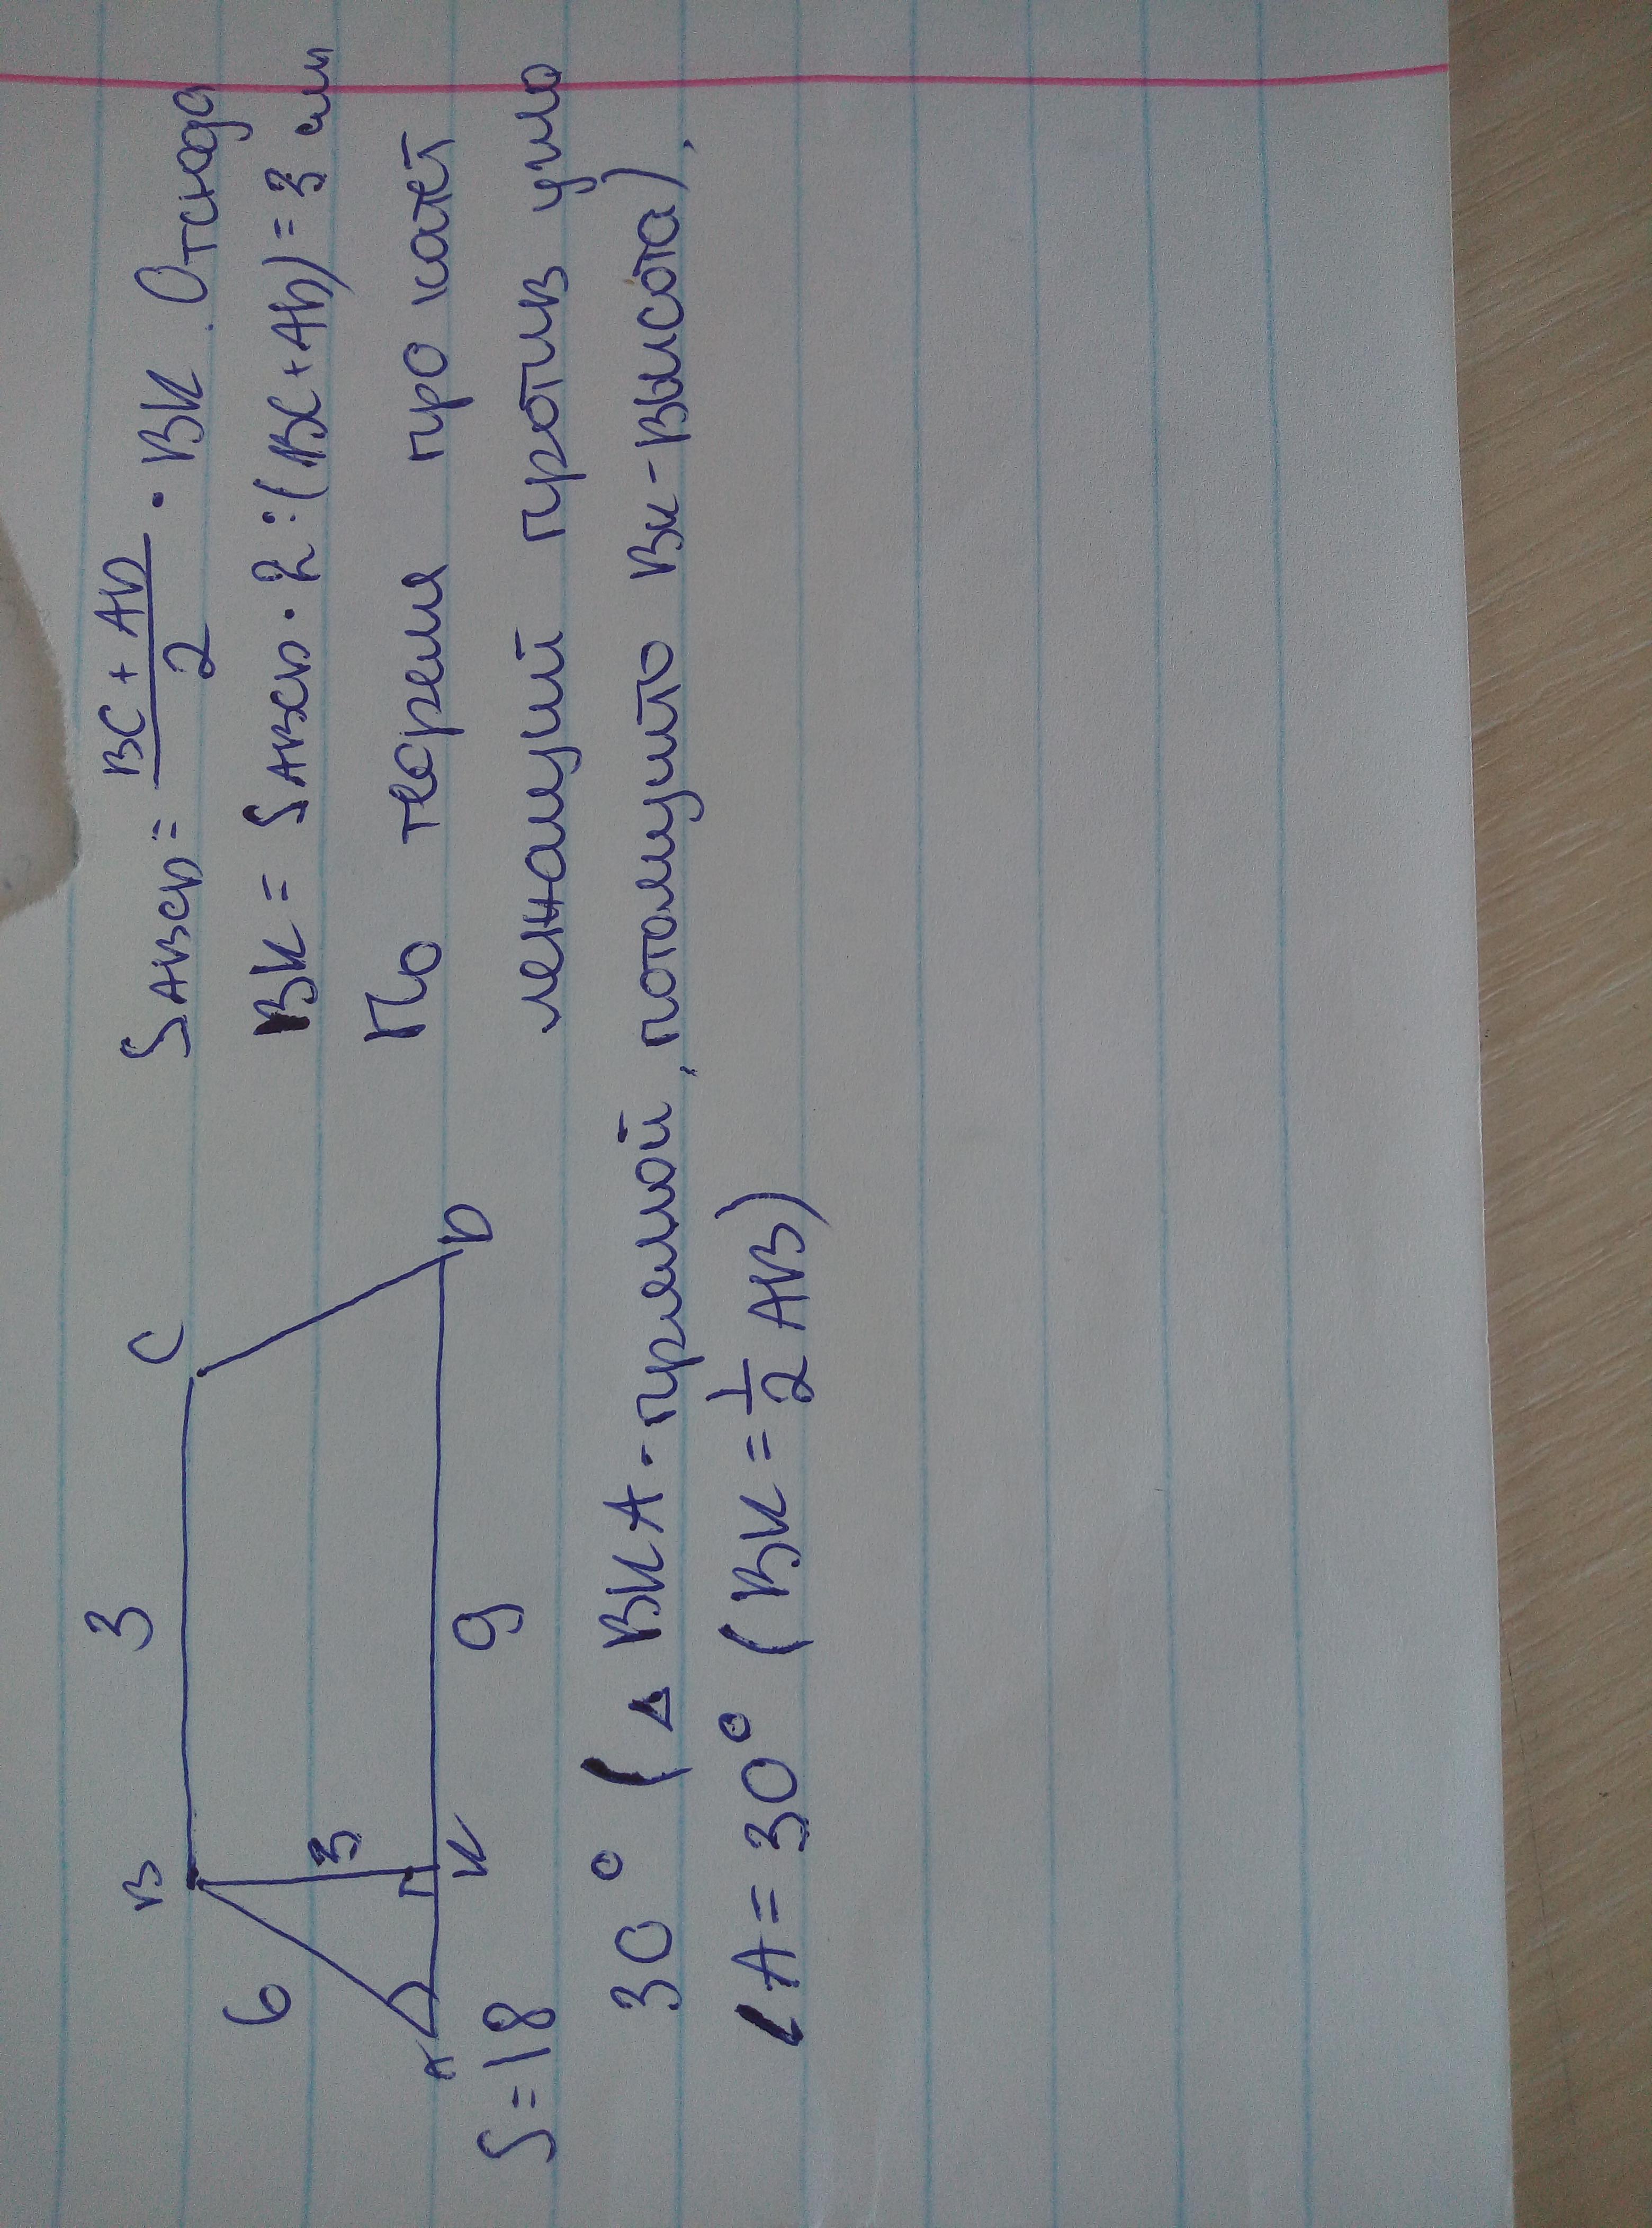 B 3 C
6 3
A K 9 D
S=18
S ABCD = (BC + AD)/2 · BK. Отсюда
BK = S ABCD · 2 : (BC + AD) = 3 см
По теореме про катет
лежащий против угла
30° (△ BKA - прямой, потомушто BK - высота),
∠A = 30° (BK = 1/2 AB)